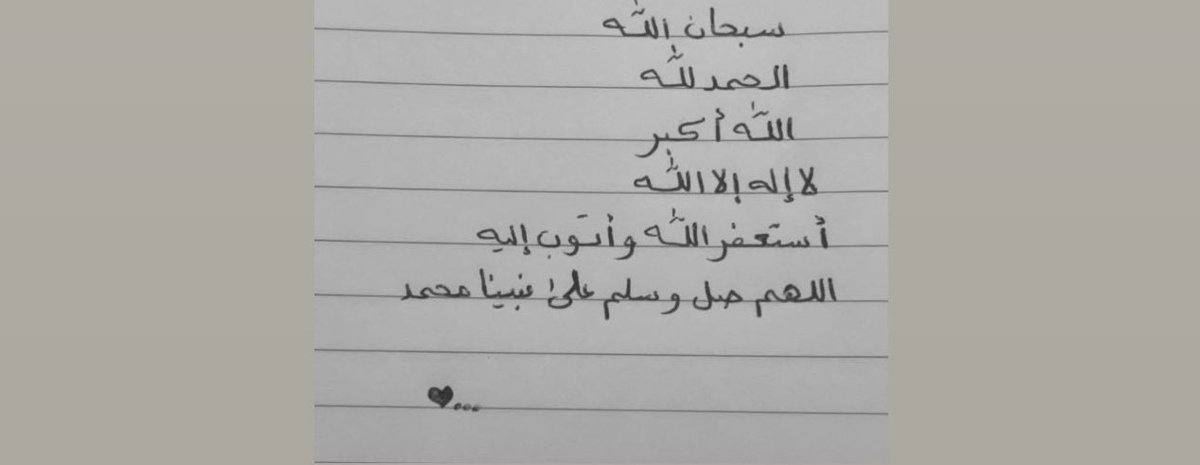 سبحان الله
الحمد لله
الله أكبر
لا إله إلا الله
أستغفر الله وأتوب إليه
اللهم صل وسلم على نبينا محمد
...♥